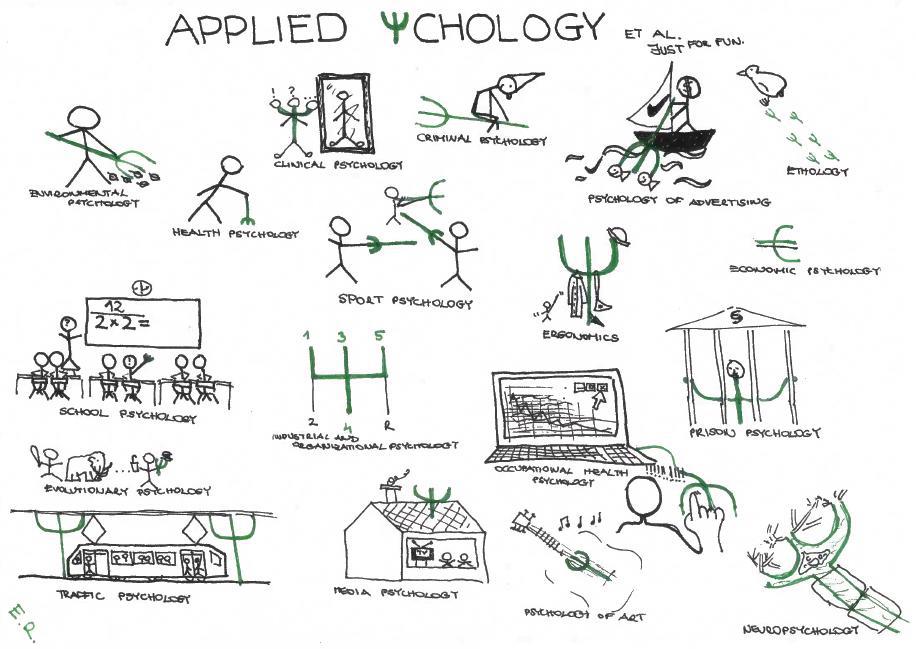 APPLIED ΨCHOLOGY
ET AL.
JUST FOR FUN.
! ? ...
CLINICAL PSYCHOLOGY
CRIMINAL PSYCHOLOGY
$
PSYCHOLOGY OF ADVERTISING
ETHOLOGY
ENVIRONMENTAL
PSYCHOLOGY
HEALTH PSYCHOLOGY
SPORT PSYCHOLOGY
ERGONOMICS
ECONOMIC PSYCHOLOGY
12
2×2=
?
!
SCHOOL PSYCHOLOGY
1 3 5
2 4 R
INDUSTRIAL AND
ORGANIZATIONAL PSYCHOLOGY
OCCUPATIONAL HEALTH
PSYCHOLOGY
§
PRISON PSYCHOLOGY
EVOLUTIONARY PSYCHOLOGY
TRAFFIC PSYCHOLOGY
TV
MEDIA PSYCHOLOGY
PSYCHOLOGY OF ART
NEUROPSYCHOLOGY
E.P.